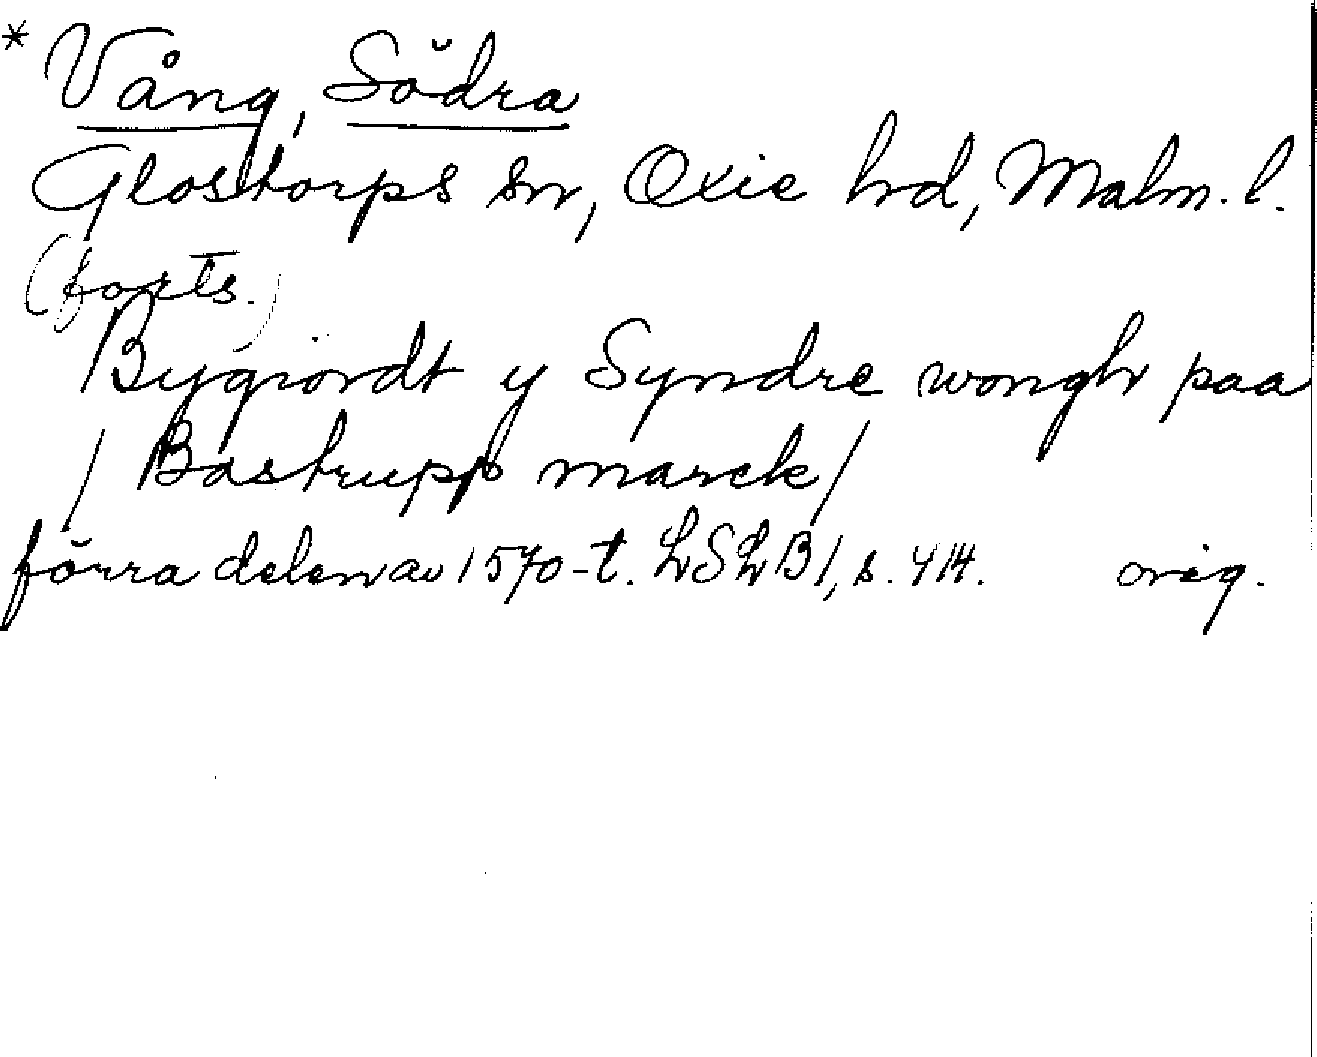 * Vång, Södra
Glostorps sn, Oxie hd, Malm. l.
(forts.)
Bygiordt y Syndre wongh paa
/ Bastrupp marck /
förra delen av 1570-t. LSLB 1, s. 414. orig.